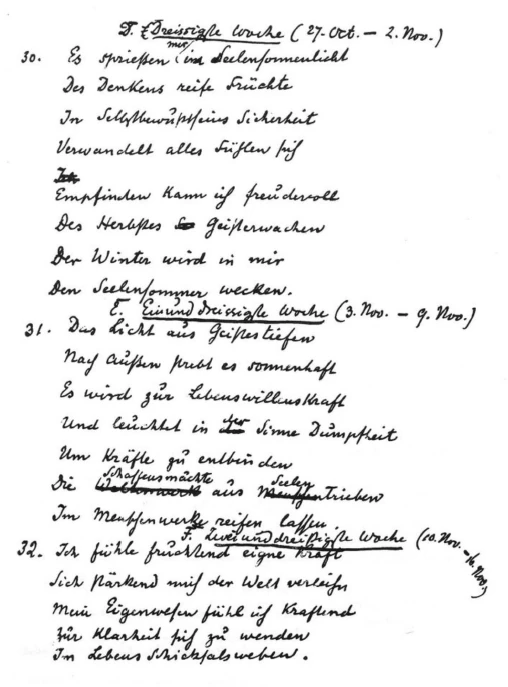 D. Dreissigste Woche (27. Oct. – 2. Nov.)
30. Es spriessen mir im Seelensonnenlicht
Des Denkens reife Früchte
In Selbstbewußtseins Sicherheit
Verwandelt alles Fühlen sich
Empfinden kann ich freudevoll
Des Herbstes Geisterwachen
Der Winter wird in mir
Den Seelensommer wecken.
E. Einunddreissigste Woche (3. Nov. – 9. Nov.)
31. Das Licht aus Geistestiefen
Nach Außen strebt es sonnenhaft
Es wird zur Lebenswillenskraft
Und leuchtet in der Sinne Dumpfheit
Um Kräfte zu entbinden
Die Schaffensmächte aus Seelentrieben
Im Menschenwerke reifen lassen.
F. Zweiunddreißigste Woche (10. Nov. – 16. Nov.)
32. Ich fühle fruchtend eigne Kraft
Sich stärkend mich der Welt verleihn
Mein Eigenwesen fühl ich kraftend
Zur Klarheit sich zu wenden
Im Lebensschicksalsweben.